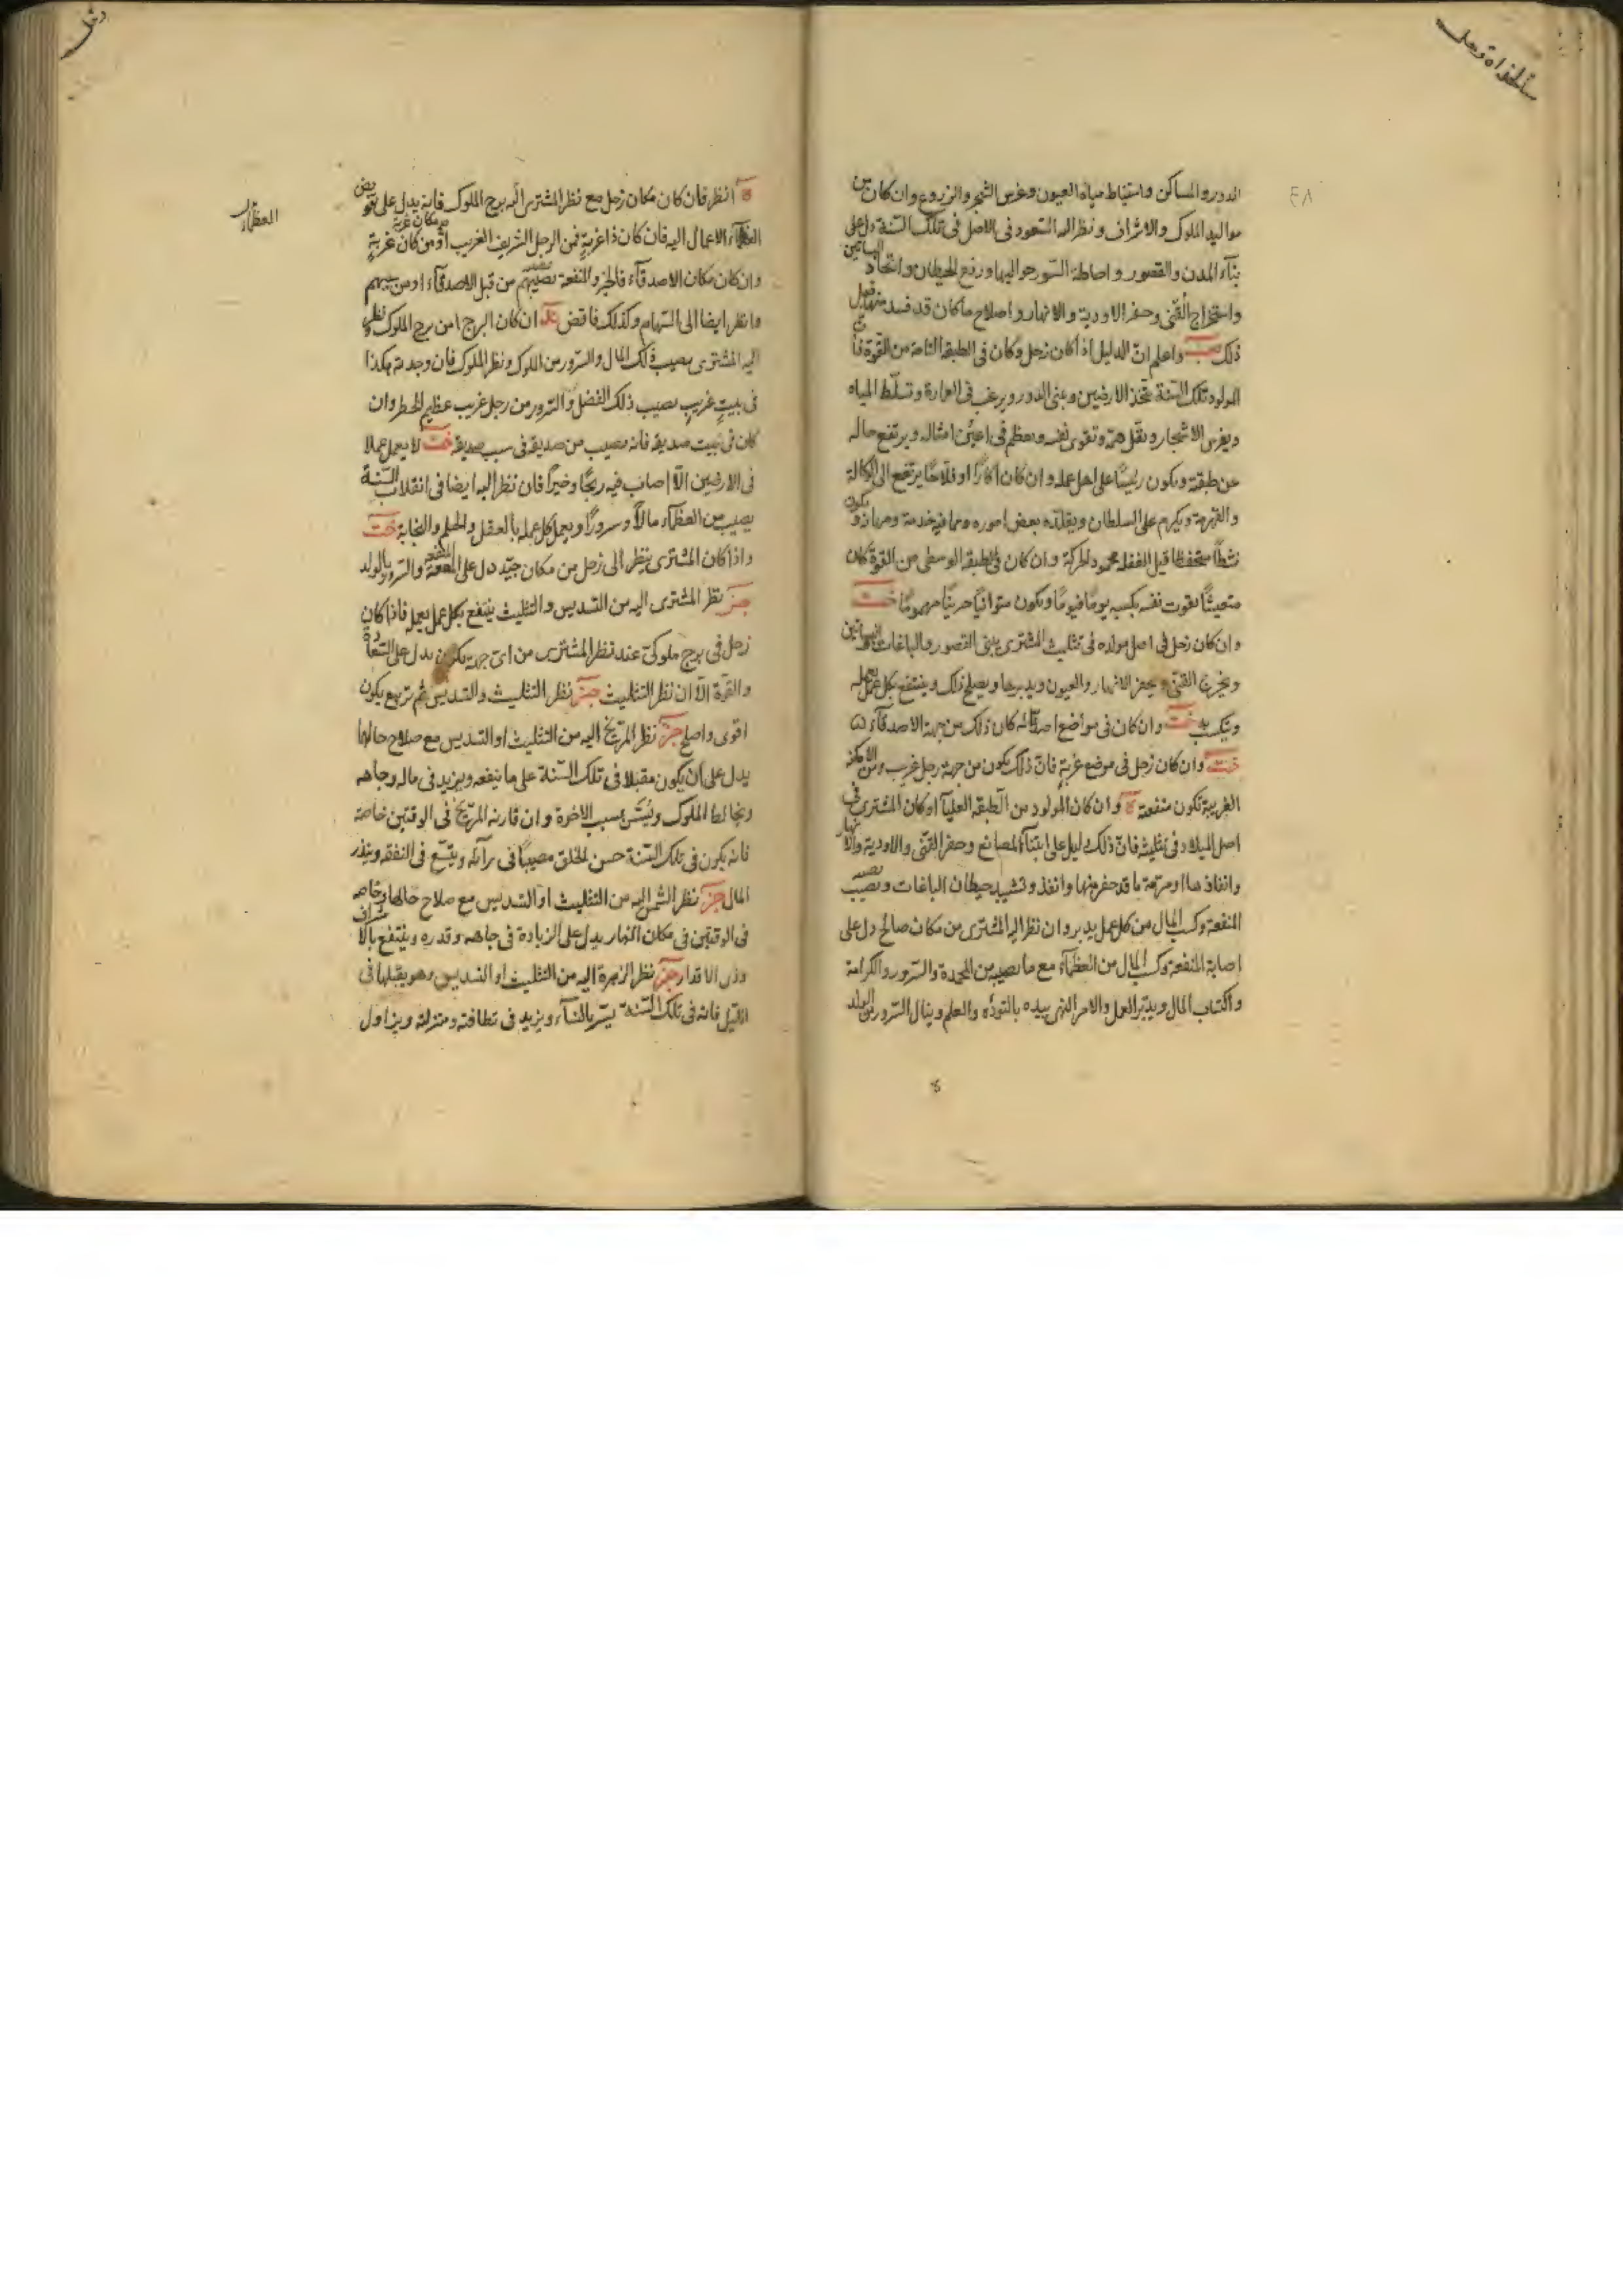 الدور والمساكن واستنباط مياه العيون وغرس الشجر والزروع وان كان من
مواليد الملوك والاشراف ونظر اليه السعود فى الاصل فى تلك السنة دل على
بناء المدن والقصور واحاطة السور حواليها ورفع الحيطان واتخاذ البساتين
واستخراج القنى وحفر الاودية والانهار واصلاح ما كان قد فسد منها قبل
ذلك واعلم ان الدليل اذا كان زحل وكان فى الطبقة التامة من القوة فان
المولود تلك السنة يتخذ الارضين ويبنى الدور ويرغب فى العمارة وتسلط المياه
ويغرس الاشجار وتقوى نفسه ويعظم فى اعين امثاله ويرتفع حاله
عن طبقته ويكون رئيسا على اهل عمله وان كان اكارا او فلاحا يرتفع الى الوكالة
والقهرمة ويكرم على السلطان ويقلده بعض اموره ويكون
نشطا متحفظا قليل الغفلة محمود الحركة وان كان فى الطبقة الوسطى من القوة كان
بقوت نفسه يكسبه يوما فيوما ويكون متوانيا
وان كان زحل فى اصل مولده فى تثليث المشترى يبنى القصور والباغات والبساتين
ويخرج القنى ويحفر الانهار والعيون ويدبرها ويصلح ذلك وينتفع بكل عمل يعمله
ويكسب به وان كان فى مواضع اصدقائه كان ذلك من جهة الاصدقاء
وان كان زحل فى موضع غربة فان ذلك يكون من جهة رجل غريب ومن الامكنة
الغريبة تكون منفعة ه وان كان المولود من الطبقة العليا او كان المشترى فى
اصل الميلاد فى تثليثه فان ذلك دليل على ابتناء المصانع وحفر القنى والاودية والانهار
وانفاذها او مرمة ما قد حفر منها وانفذ وتشييد حيطان الباغات ويصيب
المنفعة وكسب المال من كل عمل يدبر وان نظر اليه المشترى من مكان صالح دل على
اصابة المنفعة وكسب المال من العظماء مع ما يصيبه من المحمدة والسرور والكرامة
واكتساب المال ويدبر العمل والامر الذى بيده بالتودد والعلم وينال السرور من الولد
ه انظر فان كان مكان زحل مع نظر المشترى اليه برج الملوك فانه يدل على تفويض
العظماء الاعمال اليه فان كان ذا غربة فمن الرجل الشريف الغريب او من مكان غربة
وان كان مكان الاصدقاء فالخير والمنفعة يصيبهم من قبل الاصدقاء او من سببهم
وانظر ايضا الى السهام وكذلك فاقض ان كان البرج من برج الملوك نظر
اليه المشترى يصيب ذلك المال والسرور من الملوك ونظر الملوك فان وجدته هكذا
فى بيت غريب يصيب ذلك الفضل والسرور من رجل غريب عظيم الخطر وان
كان فى بيت صديقه فانه يصيب من صديقه فى سبب صديقه لا يعمل عملا
فى الارضين الا اصاب فيه ربحا وخيرا فان نظر اليه ايضا فى انقلاب السنة
يصيب من العظماء مالا وسرورا ويعمل كل عمله بالعقل والحلم والنجابة
واذا كان المشترى ينظر الى زحل من مكان جيد دل على المنفعة والسرور بالولد
نظر المشترى اليه من التسديس والتثليث ينتفع بكل عمل يعمل فاذا كان
زحل فى برج ملوكى عند نظر المشترى من اى جهة يكون يدل على السعادة
والقوة الا ان نظر التثليث نظر التثليث والتسديس ثم تربيع يكون
اقوى واصلح نظر المريخ اليه من التثليث او التسديس مع صلاح حالها
يدل على ان يكون مقبلا فى تلك السنة على ما ينفعه ويزيد فى ماله وجاهه
ويخالط الملوك بسبب الاخرة وان قارنه المريخ فى الوقتين خاصة
فانه يكون فى تلك السنة حسن الخلق مصيبا فى رايه ويتسع فى النفقة ويبذر
المال نظر الشمس اليه من التثليث او التسديس مع صلاح حالها وخاصة
فى الوقتين فى مكان النهار يدل على الزيادة فى جاهه وقدره وينتفع بالاشراف
وذوى الاقدار نظر الزهرة اليه من التثليث او التسديس وهو يقبلها فى
الليل فانه فى تلك السنة يسر بالنساء ويزيد فى نظافته ومنزلته ويزاول
العظماء